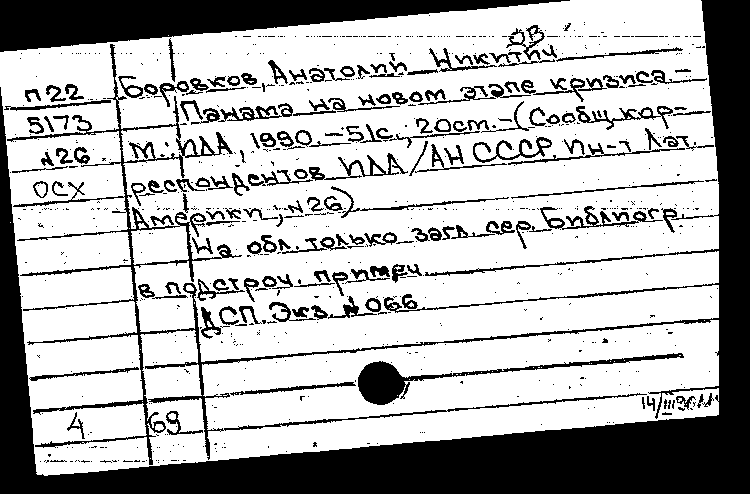 ОВ
П22 Боровков, Анатолий Никитич
5173 Панама на новом этапе кризиса -
N26 М.: ИЛА, 1990. - 51с.; 20см. - (Сообщ. кор-
ОСХ респондентов ИЛА/АН СССР. Ин-т Лат.
Америки; N26)
На обл. только загл. сер. Библиогр.
в подстроч. примеч.
ДСП. Экз. N 066
4 69
14/III 90